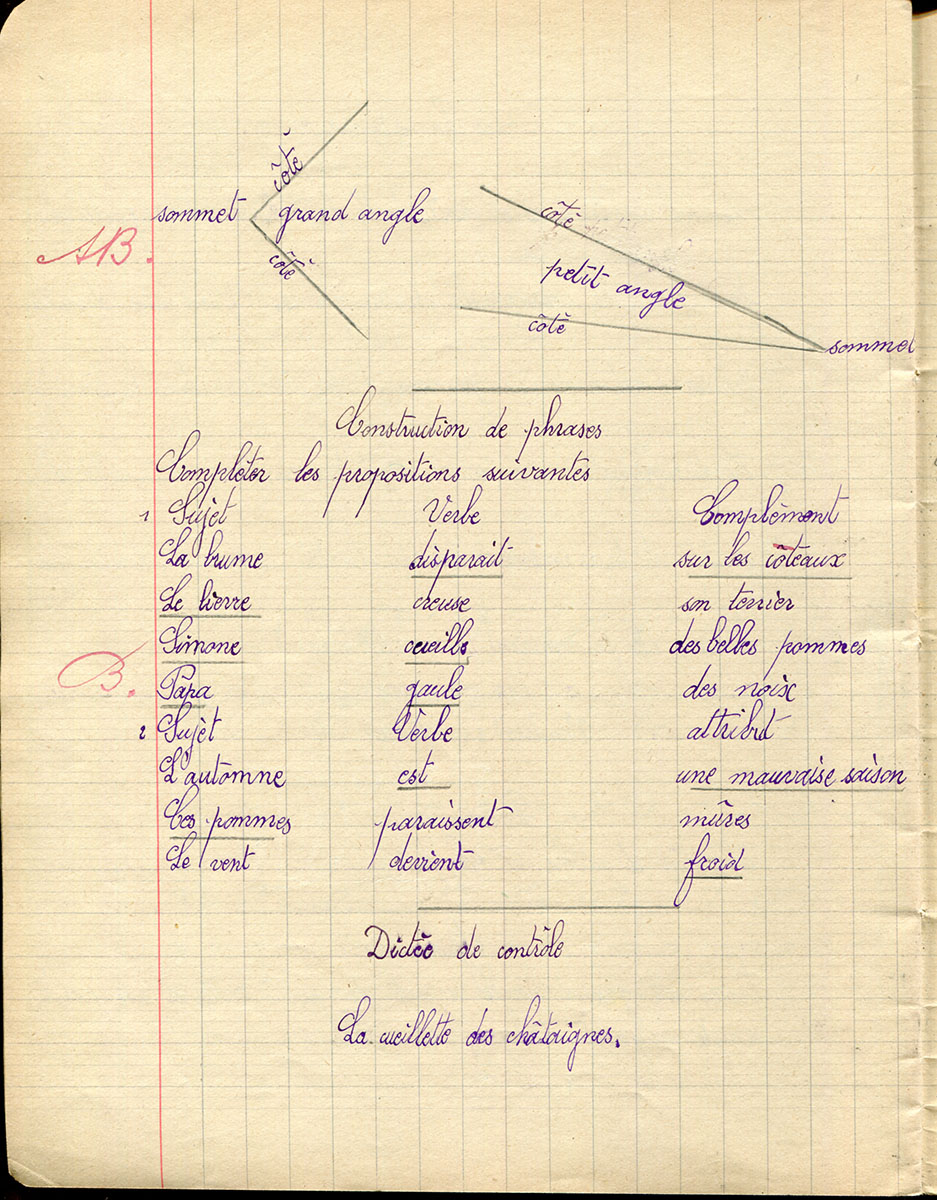 côté
sommet grand angle
côté
AB.
côté
petit angle
côté
sommet
Construction de phrases
Compléter les propositions suivantes
1 Sujet Verbe Complément
La brume disparait sur les côteaux
Le lierre creuse son terrier
Simone cueille des belles pommes
B.
Papa gaule des noix
2 Sujet Verbe attribut
L'automne est une mauvaise saison
Les pommes paraissent mûres
Le vent devient froid
Dictée de contrôle
La cueillette des châtaignes.